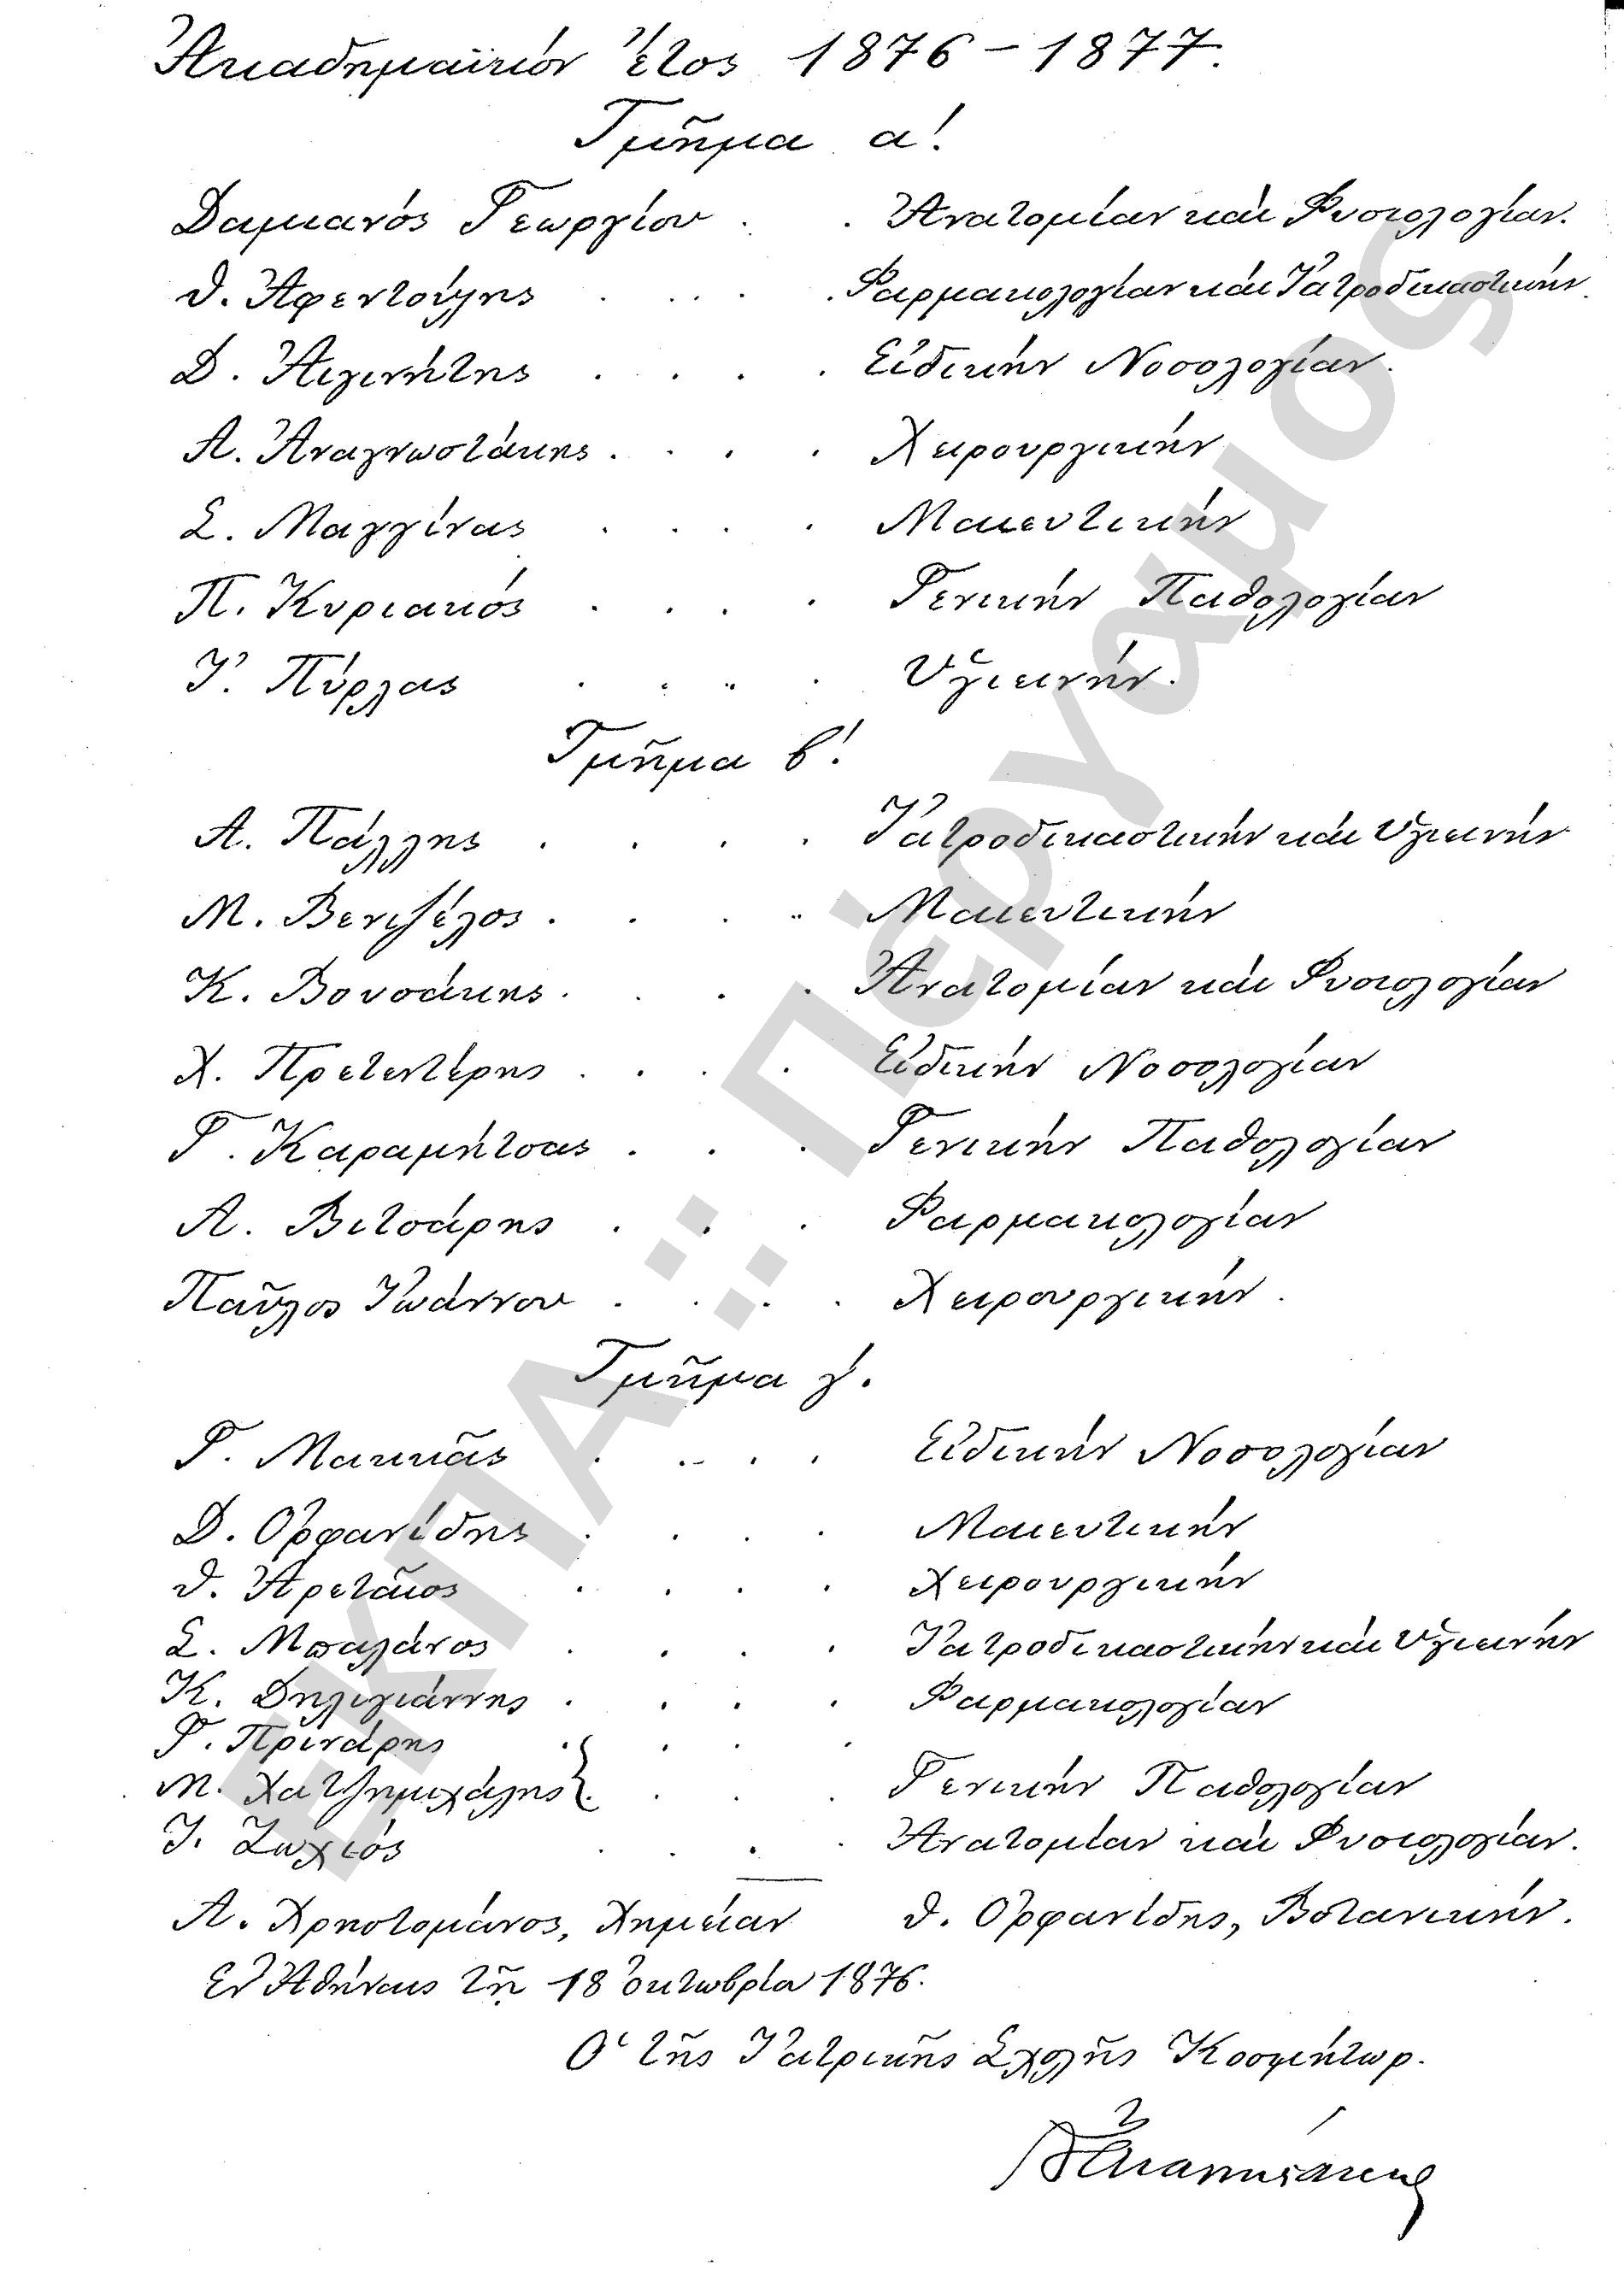 Ἀκαδημαϊκὸν ἔτος 1876 – 1877.
Τμῆμα α'.
Δαμιανός Γεωργίου . . Ἀνατομίαν καὶ Φυσιολογίαν.
Θ. Ἀφεντούλης . . . . Φαρμακολογίαν καὶ Ἰατροδικαστικήν.
Δ. Αἰγινήτης . . . . Εἰδικήν Νοσολογίαν.
Α. Ἀναγνωστάκης . . . . Χειρουργικήν
Σ. Μαγγίνας . . . . Μαιευτικήν
Π. Κυριακός . . . . Γενικήν Παθολογίαν
Ἰ. Πύρλας . . . . Ὑγιεινήν.
Τμῆμα β'.
Α. Πάλλης . . . . Ἰατροδικαστικήν καὶ Ὑγιεινήν
Μ. Βενιζέλος . . . . Μαιευτικήν
Κ. Βουσάκης . . . Ἀνατομίαν καὶ Φυσιολογίαν
Χ. Πρετεντέρης . . . . Εἰδικήν Νοσολογίαν
Γ. Καραμήτσας . . . Γενικήν Παθολογίαν
Α. Βιτσάρης . . . Φαρμακολογίαν
Παῦλος Ἰωάννου . . . . Χειρουργικήν.
Τμῆμα γ'.
Γ. Μακκᾶς . . . . Εἰδικήν Νοσολογίαν
Δ. Ὀρφανίδης . . . . Μαιευτικήν
Θ. Ἀρεταῖος . . . . Χειρουργικήν
Σ. Μπαλάνος . . . . Ἰατροδικαστικήν καὶ Ὑγιεινήν
Κ. Δηλιγιάννης . . . . Φαρμακολογίαν
Γ. Πρινάρης . . . .
Μ. Χατζημιχάλης . . . Γενικήν Παθολογίαν
Ἰ. Ζωχιός . . . . Ἀνατομίαν καὶ Φυσιολογίαν.
Α. Χρηστομάνος, Χημείαν Θ. Ὀρφανίδης, Βοτανικήν.
Ἐν Ἀθήναις τῇ 18 ὀκτωβρία 1876.
Ὁ τῆς Ἰατρικῆς Σχολῆς Κοσμήτωρ.
ΕΚΠΑ :: Πέργαμος